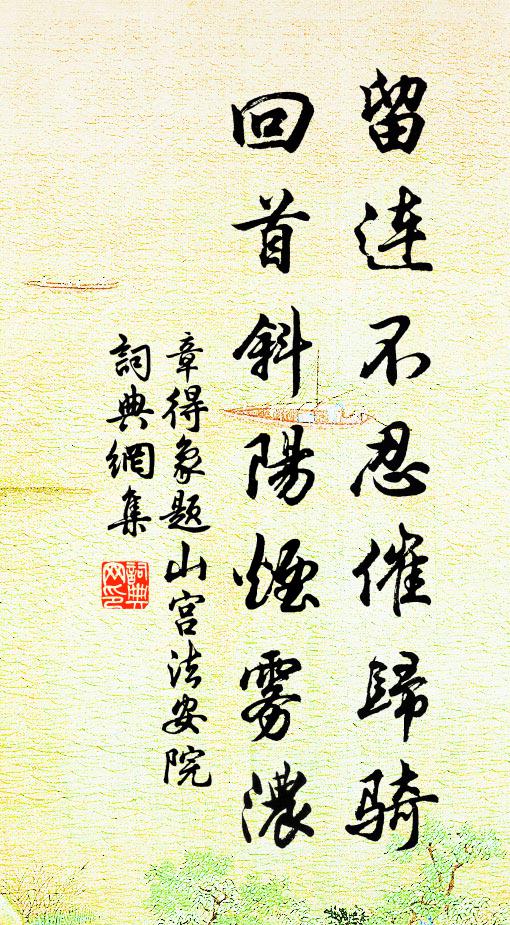 留連不忍催歸骑
回首斜陽煙雾濃
章得象題山宫法安院
詞典網集
詞典网印